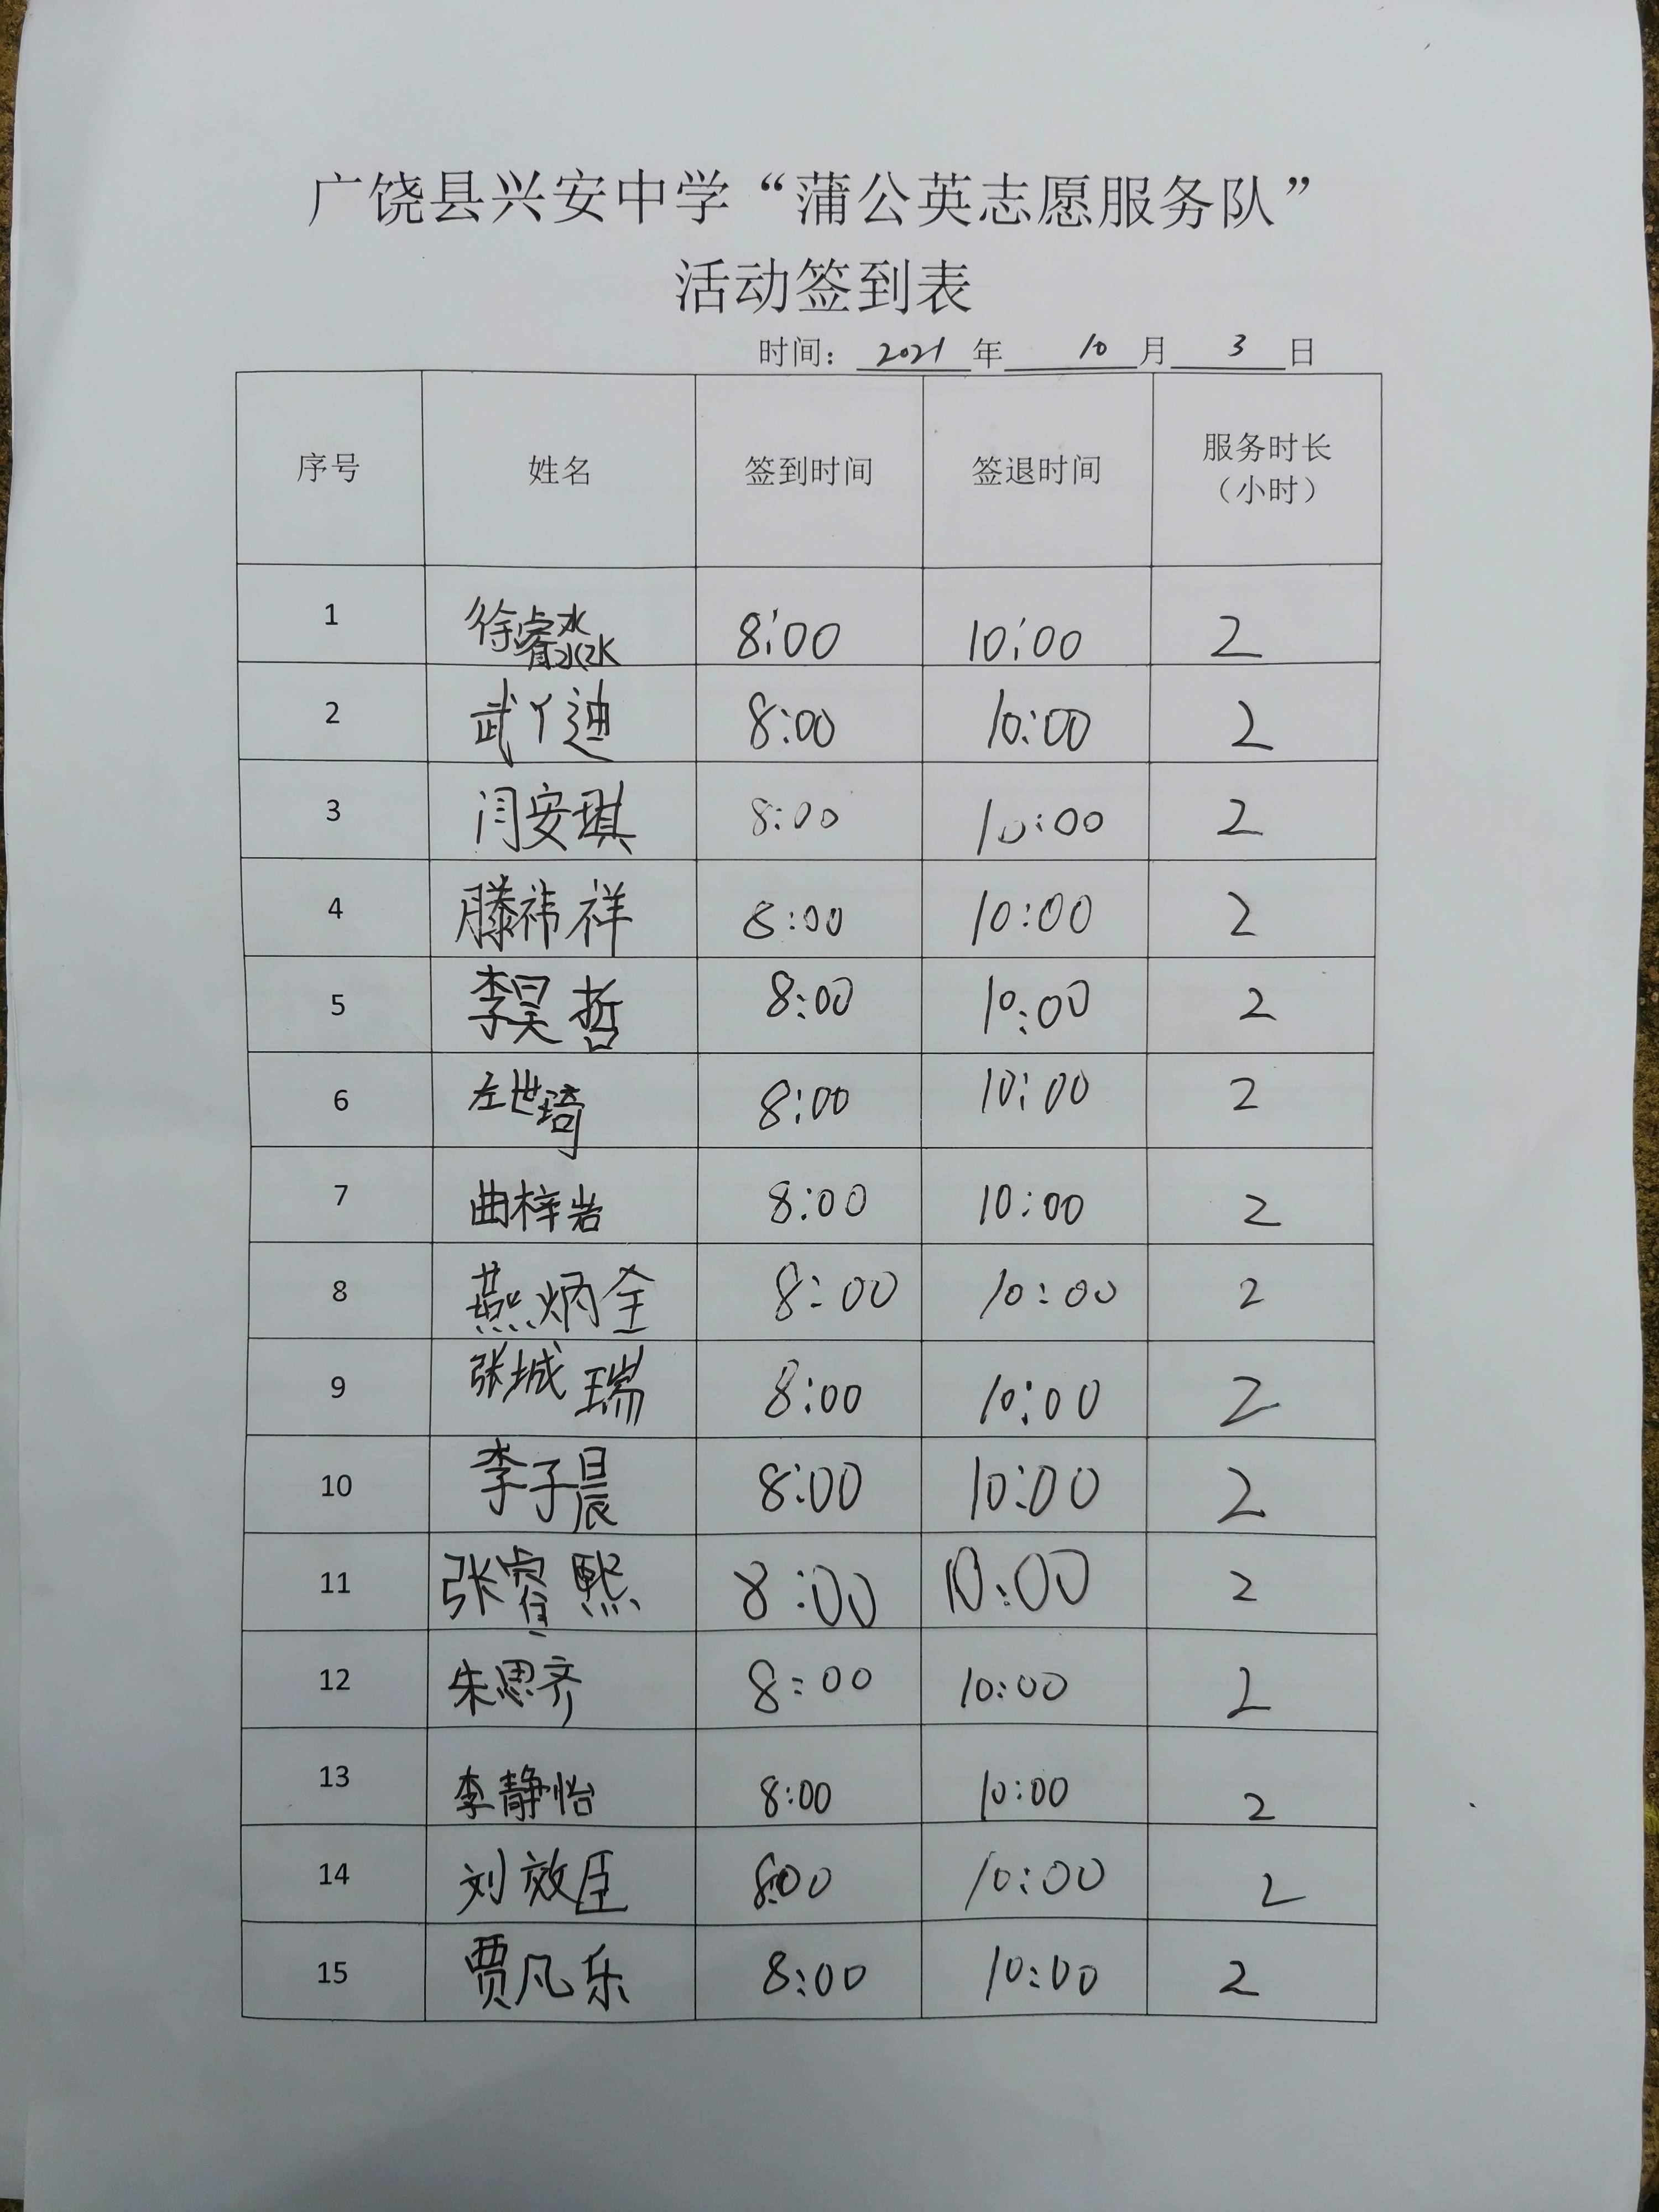 广饶县兴安中学“蒲公英志愿服务队”
活动签到表
时间：2021年10月3日
序号 姓名 签到时间 签退时间 服务时长（小时）
1 徐睿淼 8:00 10:00 2
2 武丫迪 8:00 10:00 2
3 闫安琪 8:00 10:00 2
4 滕祎祥 8:00 10:00 2
5 李昊哲 8:00 10:00 2
6 左世琦 8:00 10:00 2
7 曲梓岩 8:00 10:00 2
8 燕炳全 8:00 10:00 2
9 张城瑞 8:00 10:00 2
10 李子晨 8:00 10:00 2
11 张睿熙 8:00 10:00 2
12 朱思齐 8:00 10:00 2
13 李静怡 8:00 10:00 2
14 刘效臣 8:00 10:00 2
15 贾凡乐 8:00 10:00 2